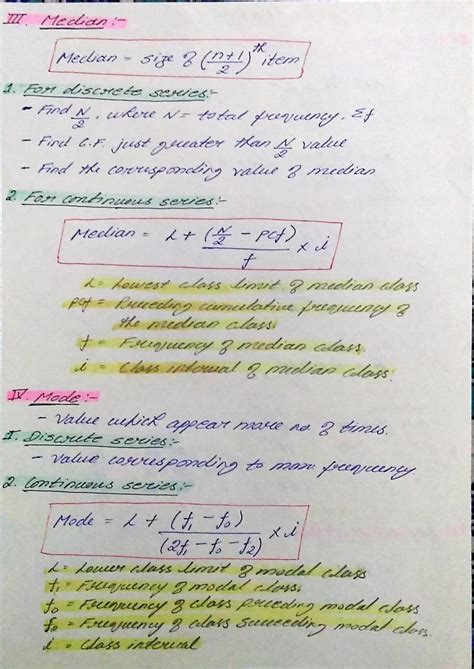 III. Median :-
Median = size of (n+1/2)th item
1. For discrete series:-
- Find N/2, where N = total frequency. Σf
- Find C.F. just greater than N/2 value
- Find the corresponding value of median
2. For continuous series:-
Median = L + (N/2 - pcf)/f × i
L = Lowest class limit of median class
pcf = Preceding cumulative frequency of
the median class.
f = Frequency of median class.
i = Class interval of median class.
IV. Mode :-
- Value which appear more no. of times.
I. Discrete series:-
- Value corresponding to max frequency
2. Continuous series:-
Mode = L + (f₁ - f₀)/(2f₁ - f₀ - f₂) × i
L = Lower class limit of modal class
f₁ = Frequency of modal class.
f₀ = Frequency of class preceding modal class
f₀ = Frequency of class succeeding modal class.
i = Class interval